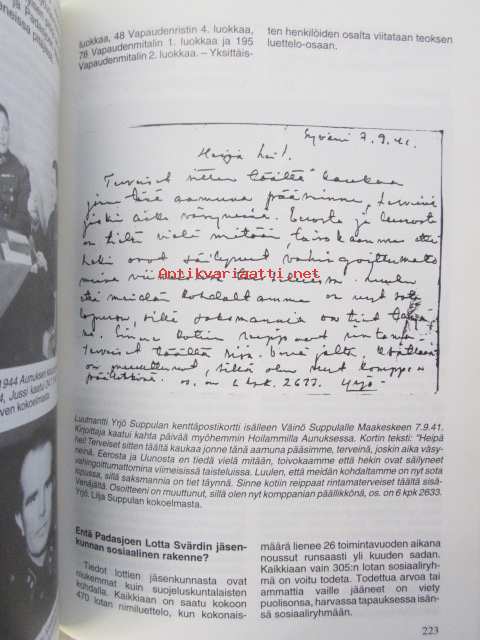 luokkaa, 48 Vapaudenristin 4. luokkaa,
78 Vapaudenmitalin 1. luokkaa ja 195
Vapaudenmitalin 2. luokkaa. – Yksittäis-
ten henkilöiden osalta viitataan teoksen
luettelo-osaan.
Syväri 7.9.41.
Heipä hei!
Terveiset sitten täältä kaukaa
jonne tänä aamuna pääsimme, terveinä
joskin aika väsyneinä. Eerosta ja Uunosta
on tiedä vielä mitään, toivokaamme että
hekin ovat säilyneet vahingoittumatto
mina viimeisissä taisteluissa. Luulen
että meidän kohdaltamme on nyt sota
lopussa, sillä saksmannia on tiet täynnä
Sinne kotiin reippaat rintama-
terveiset täältä
on muuttunut, sillä olen nyt komppa-
päällikkönä. os. on 6 kpk. 2633. Yrjö
Antikvariaatti.net
1944 Aunuksen
4, Jussi kaatui 24.7.19
ven kokoelmasta
Luutnantti Yrjö Suppulan kenttäpostikortti isälleen Väinö Suppulalle Maakeskeen 7.9.41.
Kirjoittaja kaatui kahta päivää myöhemmin Hoilammilla Aunuksessa. Kortin teksti: "Heipä
hei! Terveiset sitten täältä kaukaa jonne tänä aamuna pääsimme, terveinä, joskin aika väsy-
neinä. Eerosta ja Uunosta en tiedä vielä mitään, toivokaamme että hekin ovat säilyneet
vahingoittumattomina viimeisissä taisteluissa. Luulen, että meidän kohdaltamme on nyt sota
lopussa, sillä saksmannia on tiet täynnä. Sinne kotiin reippaat rintamaterveiset täältä sisä-
Venäjältä. Osoitteeni on muuttunut, sillä olen nyt komppanian päällikkönä, os. on 6 kpk 2633.
Yrjö. Lilja Suppulan kokoelmasta.
Entä Padasjoen Lotta Svärdin jäsen-
kunnan sosiaalinen rakenne?
Tiedot lottien jäsenkunnasta ovat
niukemmat kuin suojeluskuntalaisten
kohdalla. Kaikkiaan on saatu kokoon
470 lotan nimiluettelo, kun kokonais-
määrä lienee 26 toimintavuoden aikana
noussut runsaasti yli kuuden sadan.
Kaikkiaan vain 305:n lotan sosiaaliryh-
mä on voitu todeta. Todettua arvoa tai
ammattia vaille jääneet on viety
puolisonsa, harvassa tapauksessa isän-
sä sosiaaliryhmään.
223